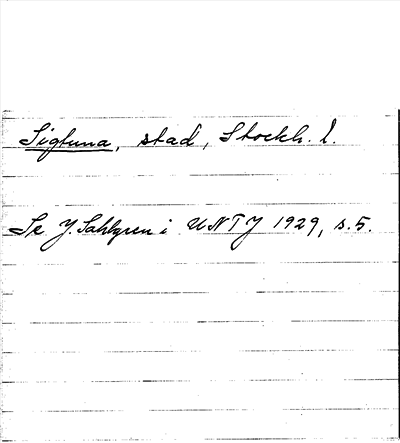 Sigtuna, stad, Stockh. l.
Se J. Sahlgren i UNTJ 1929, s. 5.